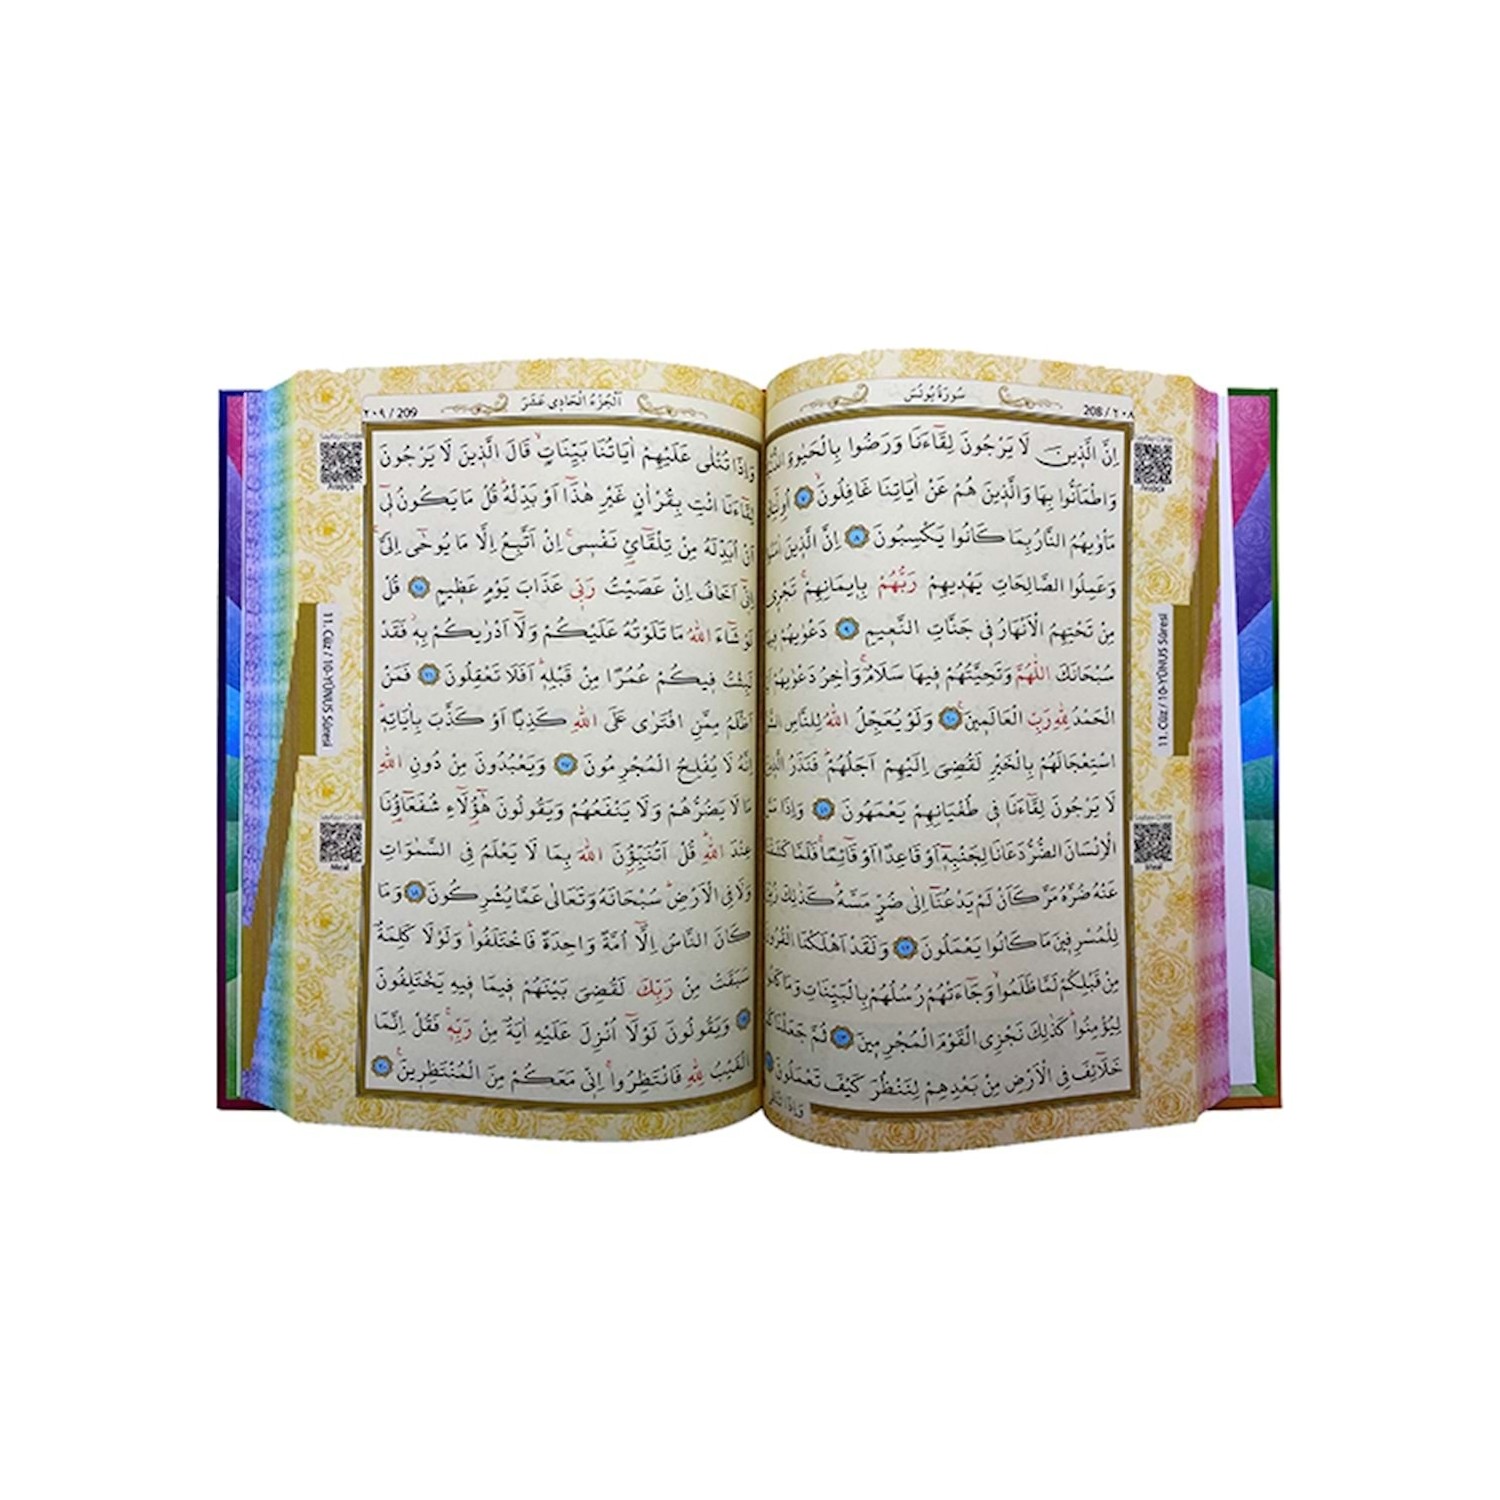 سُورَةُ يُونُسَ
208 / ٢٠٨
اِنَّ الَّذ۪ينَ لَا يَرْجُونَ لِقَٓاءَنَا وَرَضُوا بِالْحَيٰوةِ
وَاطْمَاَنُّوا بِهَا وَالَّذ۪ينَ هُمْ عَنْ اٰيَاتِنَا غَافِلُونَۙ ﴿٧﴾
مَأْوٰيهُمُ النَّارُ بِمَا كَانُوا يَكْسِبُونَ ﴿٨﴾ اِنَّ الَّذ۪ينَ
وَعَمِلُوا الصَّالِحَاتِ يَهْد۪يهِمْ رَبُّهُمْ بِا۪يمَانِهِمْۚ تَجْر۪ي
مِنْ تَحْتِهِمُ الْاَنْهَارُ ف۪ي جَنَّاتِ النَّع۪يمِ ﴿٩﴾ دَعْوٰيهُمْ
سُبْحَانَكَ اللّٰهُمَّ وَتَحِيَّتُهُمْ ف۪يهَا سَلَامٌۚ وَاٰخِرُ دَعْوٰيهُمْ
الْحَمْدُ لِلّٰهِ رَبِّ الْعَالَم۪ينَ۟ ﴿١٠﴾ وَلَوْ يُعَجِّلُ اللّٰهُ لِلنَّاسِ
اسْتِعْجَالَهُمْ بِالْخَيْرِ لَقُضِيَ اِلَيْهِمْ اَجَلُهُمْۜ فَنَذَرُ
لَا يَرْجُونَ لِقَٓاءَنَا ف۪ي طُغْيَانِهِمْ يَعْمَهُونَ ﴿١١﴾ وَاِذَا مَسَّ
الْاِنْسَانَ الضُّرُّ دَعَانَا لِجَنْبِه۪ٓ اَوْ قَاعِدًا اَوْ قَٓائِمًاۚ فَلَمَّا
عَنْهُ ضُرَّهُ مَرَّ كَاَنْ لَمْ يَدْعُنَٓا اِلٰى ضُرٍّ مَسَّهُۜ كَذٰلِكَ
لِلْمُسْرِف۪ينَ مَا كَانُوا يَعْمَلُونَ ﴿١٢﴾ وَلَقَدْ اَهْلَكْنَا الْقُرُونَ
مِنْ قَبْلِكُمْ لَمَّا ظَلَمُواۙ وَجَٓاءَتْهُمْ رُسُلُهُمْ بِالْبَيِّنَاتِ وَمَا كَانُوا
لِيُؤْمِنُواۜ كَذٰلِكَ نَجْزِي الْقَوْمَ الْمُجْرِم۪ينَ ﴿١٣﴾ ثُمَّ
خَلَٓائِفَ فِي الْاَرْضِ مِنْ بَعْدِهِمْ لِنَنْظُرَ كَيْفَ تَعْمَلُونَ
وَاِذَا تُتْلٰى
11. Cüz / 10-YÛNUS Sûresi
Arapça
Meal
اَلْجُزْءُ الْحَاد۪ي عَشَرَ
٢٠٩ / 209
وَاِذَا تُتْلٰى عَلَيْهِمْ اٰيَاتُنَا بَيِّنَاتٍۙ قَالَ الَّذ۪ينَ لَا يَرْجُونَ
لِقَٓاءَنَا ائْتِ بِقُرْاٰنٍ غَيْرِ هٰذَٓا اَوْ بَدِّلْهُۜ قُلْ مَا يَكُونُ ل۪ٓي
اَنْ اُبَدِّلَهُ مِنْ تِلْقَٓائِ۬ نَفْس۪يۚ اِنْ اَتَّبِعُ اِلَّا مَا يُوحٰٓى اِلَيَّۚ
اِنّ۪ٓي اَخَافُ اِنْ عَصَيْتُ رَبّ۪ي عَذَابَ يَوْمٍ عَظ۪يمٍ ﴿١٥﴾ قُلْ
لَوْ شَٓاءَ اللّٰهُ مَا تَلَوْتُهُ عَلَيْكُمْ وَلَٓا اَدْرٰيكُمْ بِه۪ۘ فَقَدْ
لَبِثْتُ ف۪يكُمْ عُمُرًا مِنْ قَبْلِه۪ۜ اَفَلَا تَعْقِلُونَ ﴿١٦﴾ فَمَنْ
اَظْلَمُ مِمَّنِ افْتَرٰى عَلَى اللّٰهِ كَذِبًا اَوْ كَذَّبَ بِاٰيَاتِه۪ۜ
اِنَّهُ لَا يُفْلِحُ الْمُجْرِمُونَ ﴿١٧﴾ وَيَعْبُدُونَ مِنْ دُونِ اللّٰهِ
مَا لَا يَضُرُّهُمْ وَلَا يَنْفَعُهُمْ وَيَقُولُونَ هٰٓؤُ۬لَٓاءِ شُفَعَٓاؤُ۬نَا
عِنْدَ اللّٰهِۜ قُلْ اَتُنَبِّؤُ۫نَ اللّٰهَ بِمَا لَا يَعْلَمُ فِي السَّمٰوَاتِ
وَلَا فِي الْاَرْضِۜ سُبْحَانَهُ وَتَعَالٰى عَمَّا يُشْرِكُونَ ﴿١٨﴾ وَمَا
كَانَ النَّاسُ اِلَّٓا اُمَّةً وَاحِدَةً فَاخْتَلَفُواۜ وَلَوْلَا كَلِمَةٌ
سَبَقَتْ مِنْ رَبِّكَ لَقُضِيَ بَيْنَهُمْ ف۪يمَا ف۪يهِ يَخْتَلِفُونَ
﴿١٩﴾ وَيَقُولُونَ لَوْلَٓا اُنْزِلَ عَلَيْهِ اٰيَةٌ مِنْ رَبِّه۪ۚ فَقُلْ اِنَّمَا
الْغَيْبُ لِلّٰهِ فَانْتَظِرُواۚ اِنّ۪ي مَعَكُمْ مِنَ الْمُنْتَظِر۪ينَ۟ ﴿٢٠﴾
11. Cüz / 10-YÛNUS Sûresi
Arapça
Meal